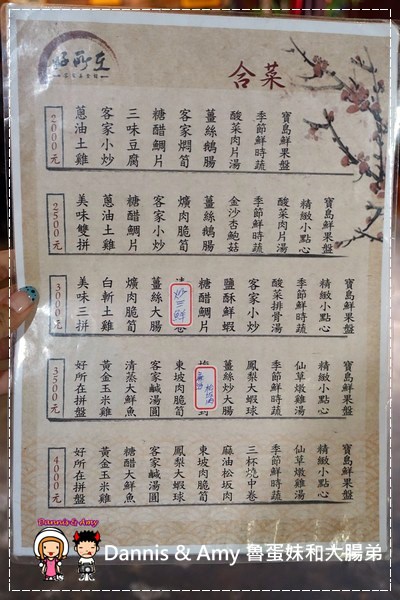 好所在
合菜
2000元
蔥油土雞
客家小炒
三味豆腐
糖醋鯛片
客家燜筍
薑絲鵝腸
酸菜肉片湯
季節鮮時蔬
寶島鮮果盤
2500元
美味雙拼
蔥油土雞
糖醋鯛片
客家小炒
爌肉脆筍
薑絲鵝腸
金沙杏鮑菇
季節鮮時蔬
酸菜肉片湯
精緻小點心
寶島鮮果盤
3000元
美味三拼
白斬土雞
爌肉脆筍
薑絲大腸
炒三鮮
糖醋鯛片
鹽酥鮮蝦
客家小炒
酸菜排骨湯
季節鮮時蔬
精緻小點心
寶島鮮果盤
3500元
好所在拼盤
黃金玉米雞
清蒸大鮮魚
客家鹹湯圓
東坡肉脆筍
薑絲炒大腸
鳳梨大蝦球
季節鮮時蔬
仙草燉雞湯
精緻小點心
寶島鮮果盤
4000元
好所在拼盤
黃金玉米雞
糖醋大鮮魚
客家鹹湯圓
鳳梨大蝦球
東坡肉脆筍
麻油松坂肉
三杯燒中卷
季節鮮時蔬
仙草燉雞湯
精緻小點心
寶島鮮果盤
Dannis & Amy
Dannis & Amy 魯蛋妹和大腸弟